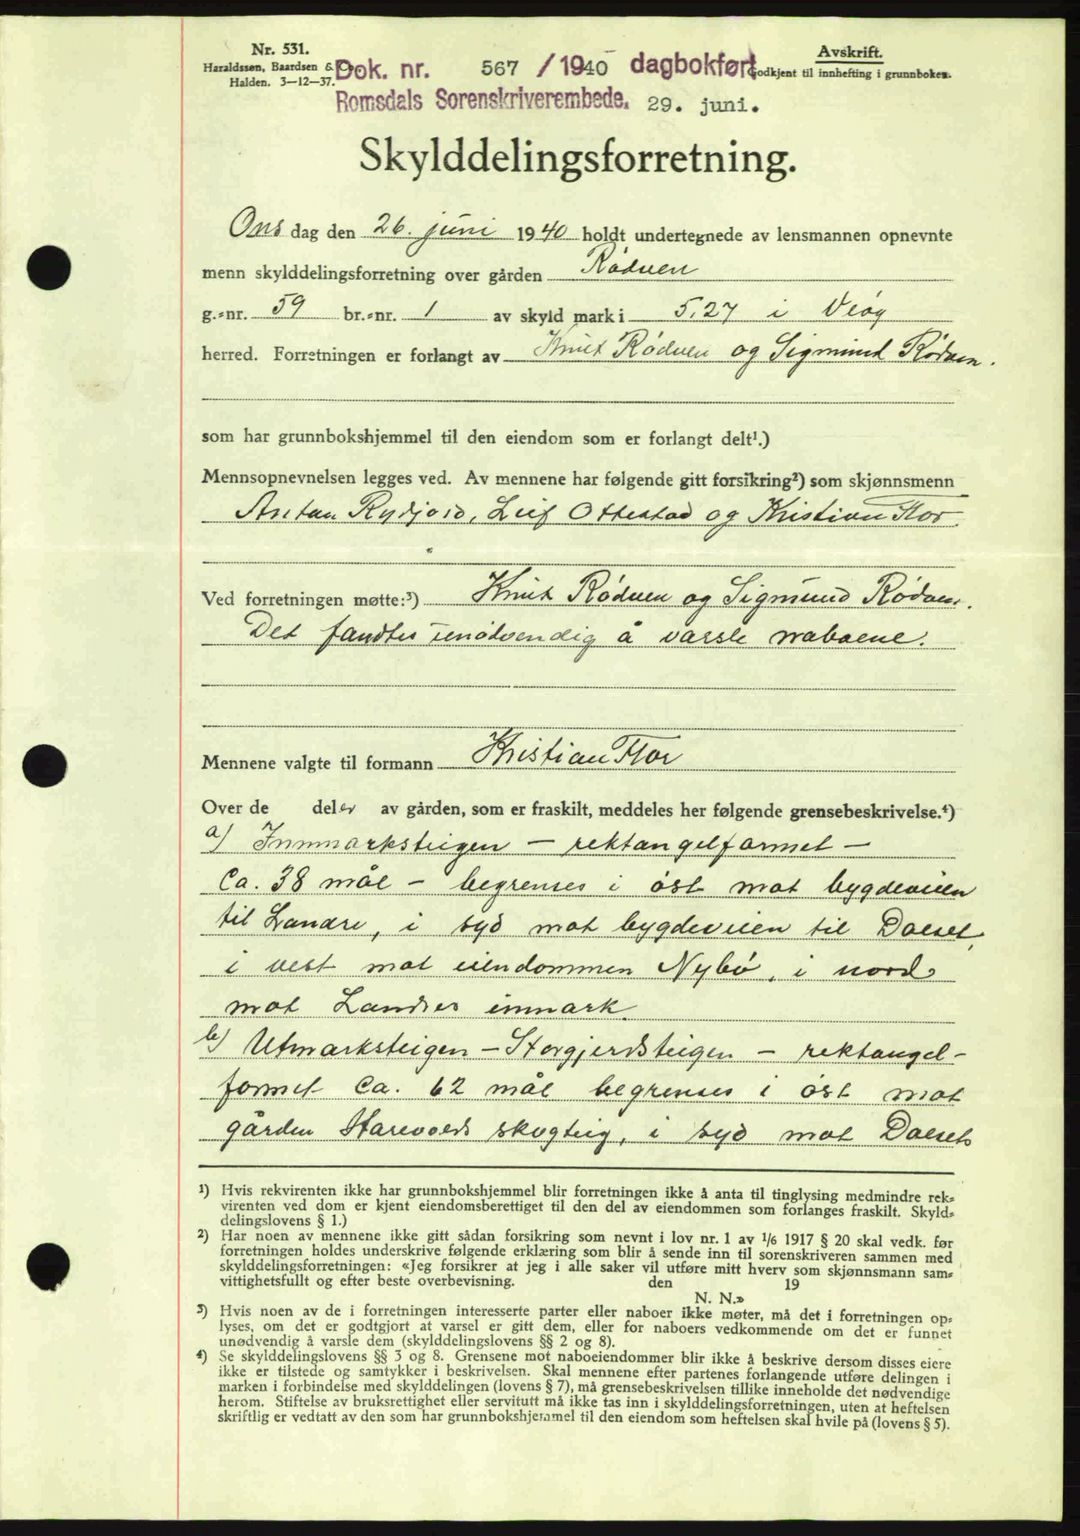 Nr. 531.
Haraldssen, Baardsen & Co
Halden. 3-12-37.
Avskrift.
Godkjent til innhefting i grunnboken.
Dok. nr. 567 / 1940 dagbokført
Romsdals Sorenskriverembede. 29. juni.
Skylddelingsforretning.
Ons dag den 26. juni 1940 holdt undertegnede av lensmannen opnevnte
menn skylddelingsforretning over gården Rødven
g.-nr. 59 br.-nr. 1 av skyld mark i 5,27 i Veøy
herred. Forretningen er forlangt av Knut Rødven og Sigmund Rødven.
som har grunnbokshjemmel til den eiendom som er forlangt delt¹.)
Mennsopnevnelsen legges ved. Av mennene har følgende gitt forsikring²) som skjønnsmenn
Anton Rydjord, Leif Ottestad og Kristian Flor.
Ved forretningen møtte:³) Knut Rødven og Sigmund Rødven.
Det fandtes unødvendig å varsle naboene.
Mennene valgte til formann Kristian Flor
Over de deler av gården, som er fraskilt, meddeles her følgende grensebeskrivelse.⁴)
a) Innmarksteigen – rektangelformet –
Ca. 38 mål – begrenses i øst mot bygdeveien
til Landre, i syd mot bygdeveien til Dalset,
i vest mot eiendommen Nybø, i nord
mot Landres innmark.
b) Utmarksteigen – Storgjerdsteigen – rektangel-
formet Ca. 62 mål begrenses i øst mot
gården Harevolds skogteig, i syd mot Dalsets
¹) Hvis rekvirenten ikke har grunnbokshjemmel blir forretningen ikke å anta til tinglysing medmindre rek-
virenten ved dom er kjent eiendomsberettiget til den del av eiendommen som forlanges fraskilt. Skyld-
delingslovens § 1.)
²) Har noen av mennene ikke gitt sådan forsikring som nevnt i lov nr. 1 av 1/6 1917 § 20 skal vedk. før
forretningen holdes underskrive følgende erklæring som blir å sende inn til sorenskriveren sammen med
skylddelingsforretningen: «Jeg forsikrer at jeg i alle saker vil utføre mitt hverv som skjønnsmann sam-
vittighetsfullt og efter beste overbevisning. den 19
N. N.»
³) Hvis noen av de i forretningen interesserte parter eller naboer ikke møter, må det i forretningen op-
lyses, om det er godtgjort at varsel er gitt dem, eller for naboers vedkommende om det er funnet
unødvendig å varsle dem (skylddelingslovens §§ 2 og 8).
⁴) Se skylddelingslovens §§ 3 og 8. Grensene mot naboeiendommer blir ikke å beskrive dersom disses eiere
ikke er tilstede og samtykker i beskrivelsen. Skal mennene efter partenes forlangende utføre delingen i
marken i forbindelse med skylddelingen (lovens § 7), må grensebeskrivelsen tillike inneholde det nødvendige
herom. Stiftelse av bruksrettighet eller servitutt må ikke tas inn i skylddelingsforretningen, uten at heftelsen
skriftlig er vedtatt av den som har grunnbokshjemmel til den eiendom som heftelsen skal hvile på (lovens § 5).